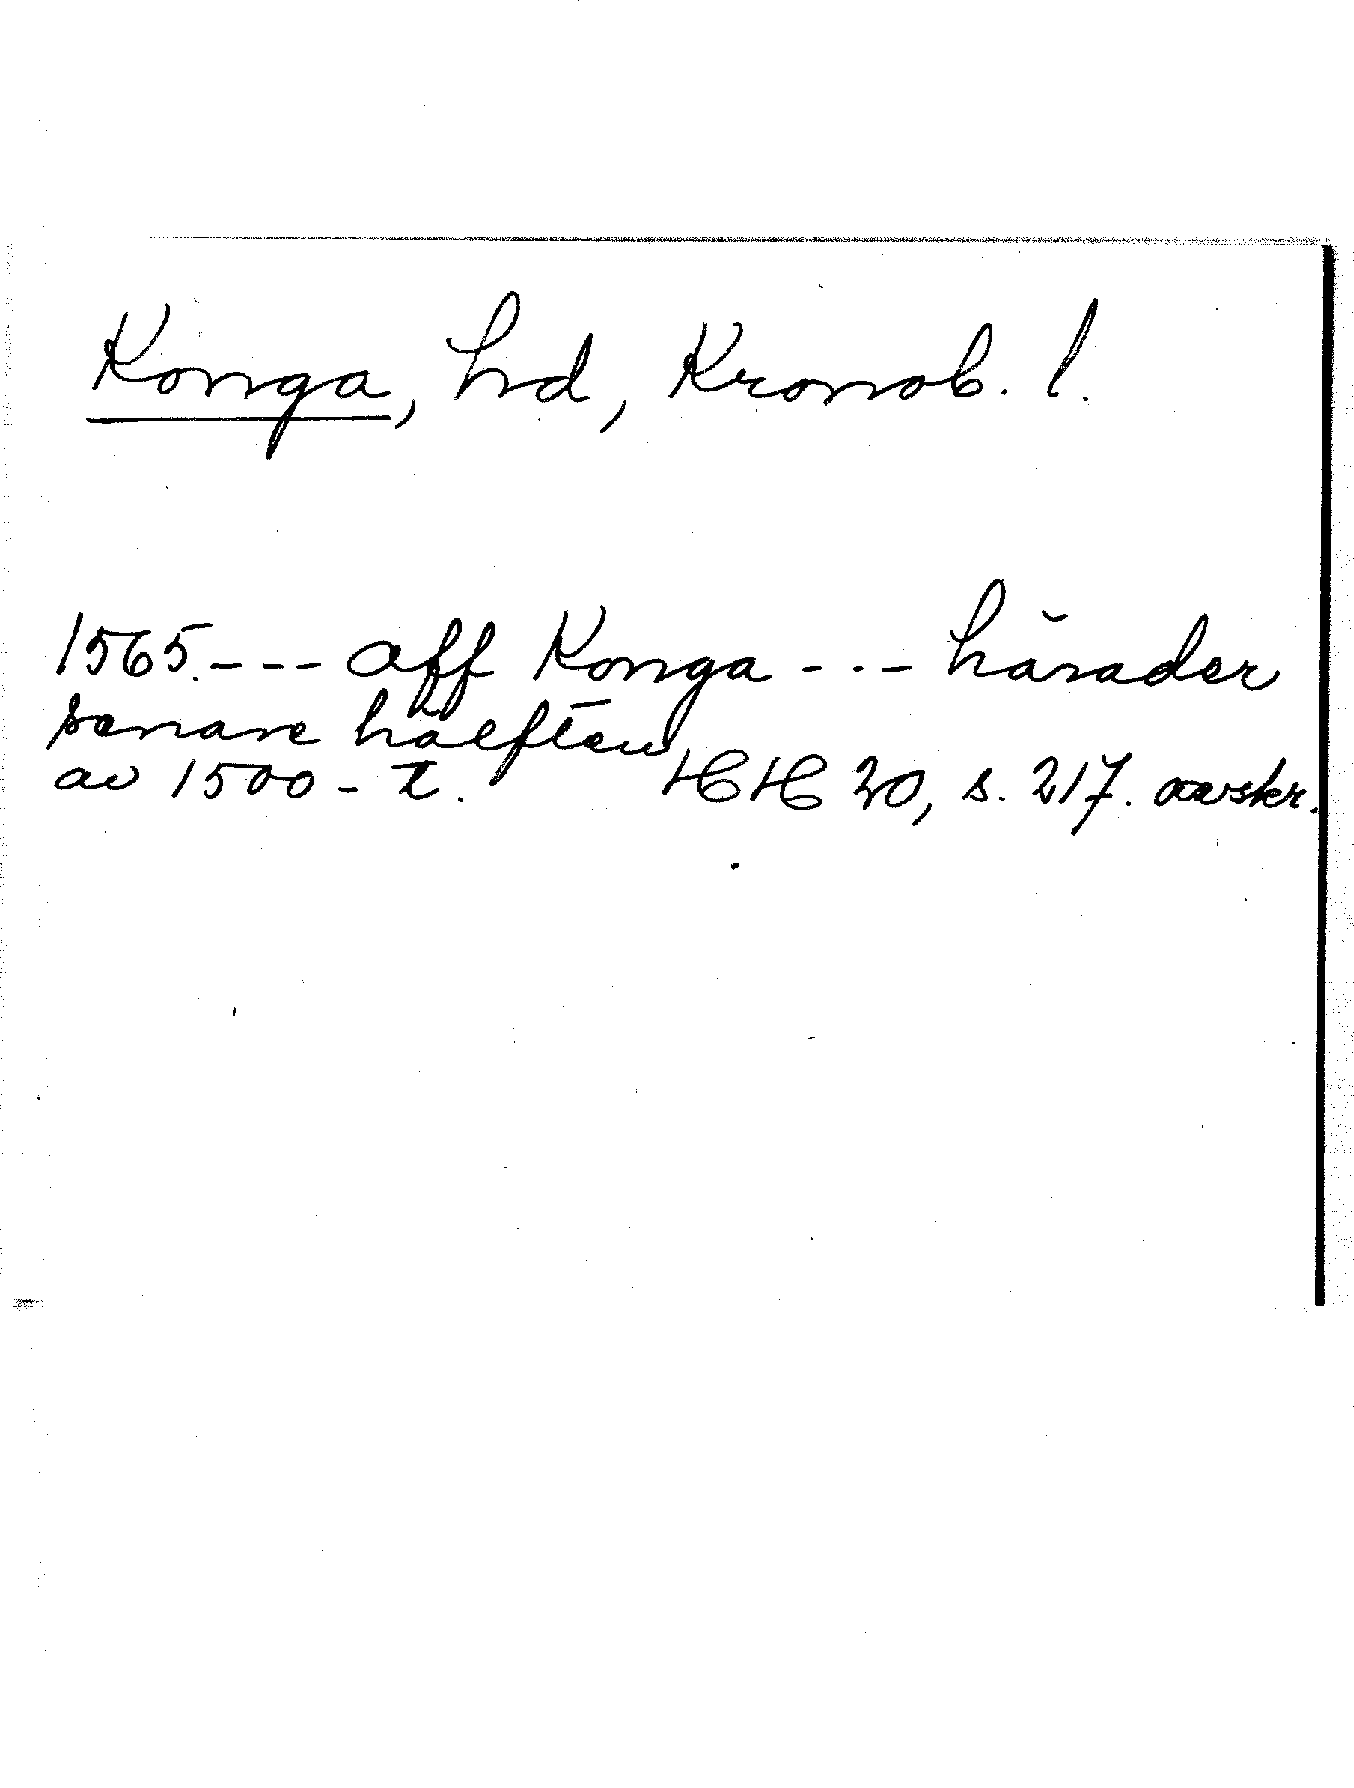 Konga, hd, Kronob. l.
1565. --- aff Konga --- härader
senare hälften
av 1500-t. HH 20, s. 217. avskr.